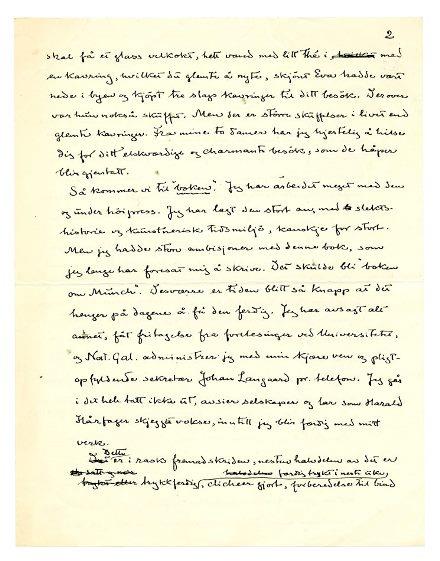 2
skal få et glass velkokt, hett vand med litt thé i, med
en kavring, hvilket du glemte å nyte, skjönt Eva hadde vært
nede i byen og kjöpt tre slags kavringer til ditt besök. Desover
var hun nokså skuffet. Men der er större skuffelser i livet end
glemte kavringer. Fra mine to damer har jeg hjertelig å hilse
dig for ditt elskværdige og charmante besök, som de håper
blir gjentatt.
Så kommer vi til "boken". Jeg har arbeidet meget med den
og under höitpress. Jeg har lagt den stort an, med slekts-
historie og kunstneriske tidsmiljö, kanskje for stort.
Men jeg hadde store ambisjoner med denne bok, som
jeg lenge har foresat mig å skrive. Det skulde bli "boken
om Munch". Desværre er tiden blitt så knapp at det
henger på dagene å få den ferdig. Jeg har avsagt alt
annet, fåt fritagelse fra forelesinger ved Universitetet,
og Nat. Gal. administrer jeg med min kjære ven og pligt-
opfyldende sekretær Johan Langaard pr. telefon. Jeg går
i det hele tatt ikke ut, avsier selskaper og lar som Harald
Hårfager skjegget vokse, inntil jeg blir færdig med mitt
verk.
Dette er i rask fremadskriden, nesten halvdelen av det er
halvdelen færdig trykt i neste uke,
trykkferdig, clicheer gjort, forberedelse til bind